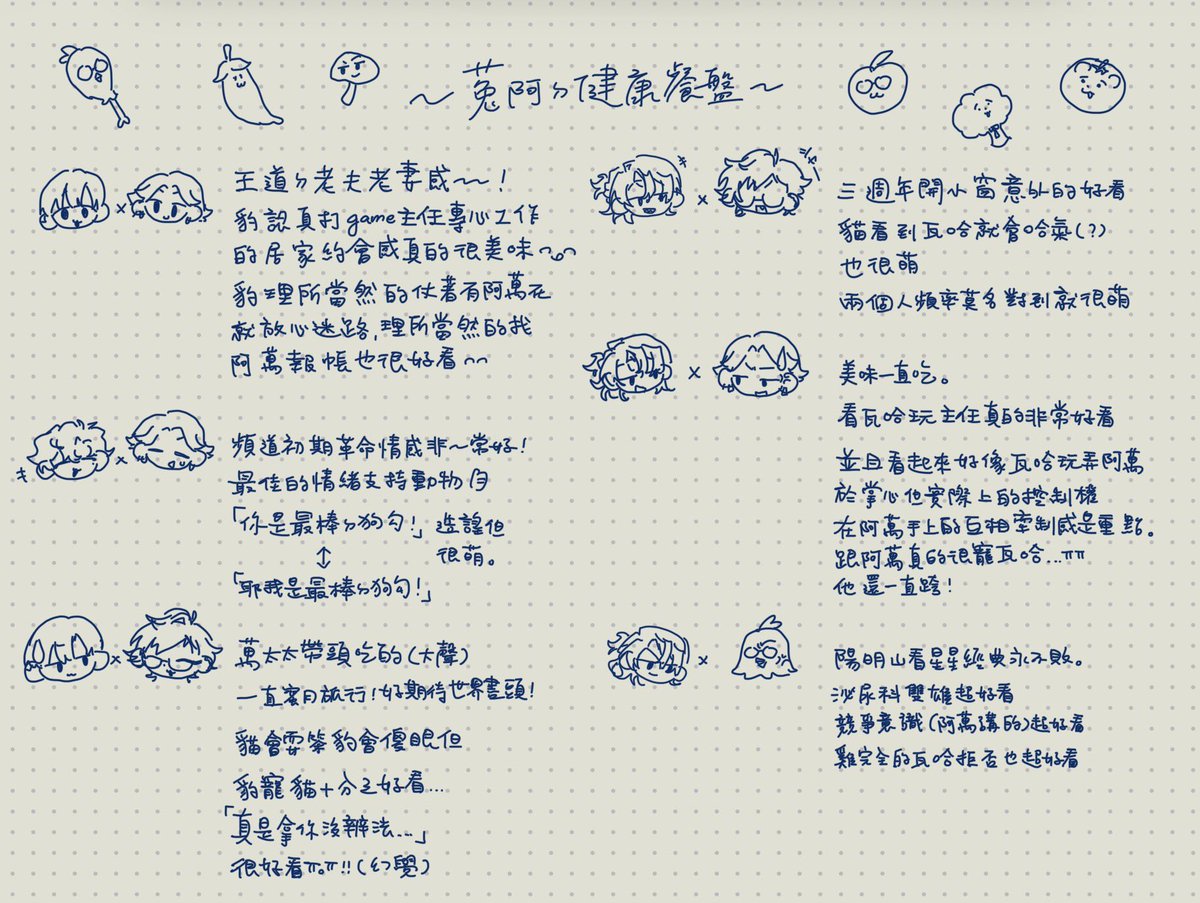 ～菟阿ㄉ健康餐盤～
王道ㄉ老夫老妻感～～！
豹認真打game主任專心工作
的居家約會感真的很美味～～
豹理所當然的仗著有阿萬在
就放心迷路,理所當然的找
阿萬報帳也很好看～～
頻道初期革命情感非～常好！
最佳的情緒支持動物
「你是最棒ㄉ狗勾！」造謠但
很萌。
↕
「耶我是最棒ㄉ狗勾！」
萬太太帶頭吃的(大聲)
一直蜜月旅行！好期待世界盡頭！
貓會耍笨豹會傻眼但
豹寵貓十分之好看...
「真是拿你沒辦法...」
很好看πoπ!!(幻覺)
三週年開小窗意外的好看
貓看到瓦哈就會哈氣(?)
也很萌
兩個人頻率莫名對到就很萌
美味一直吃。
看瓦哈玩主任真的非常好看
並且看起來好像瓦哈玩弄阿萬
於掌心但實際上的控制權
在阿萬手上的互相牽制感是重點。
跟阿萬真的很寵瓦哈...ππ
他還一直跨！
陽明山看星星經典永不敗。
泌尿科雙雄超好看
競爭意識(阿萬講的)超好看
雞完全的瓦哈拒否也超好看